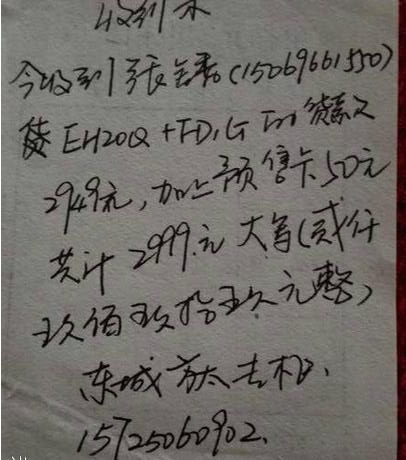 收到条
今收到张(15069661550)
货EH20Q+TD,G 的货款
2949元,加上预售卡50元
共计2999.元 大写(贰仟
玖佰玖拾玖元整)
东城方太
15725060902.